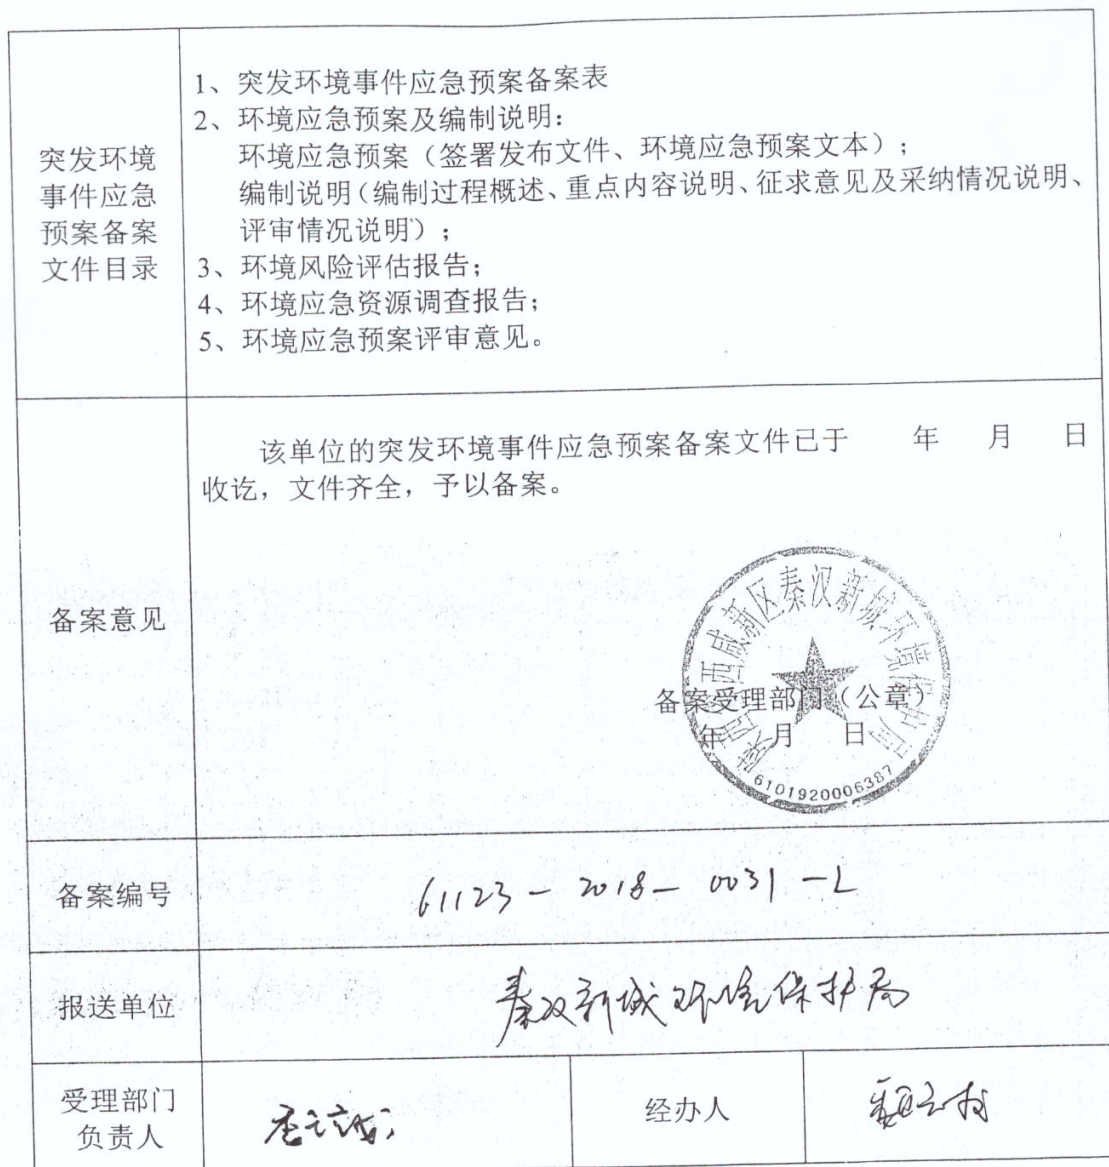 突发环境
事件应急
预案备案
文件目录
1、突发环境事件应急预案备案表
2、环境应急预案及编制说明：
环境应急预案（签署发布文件、环境应急预案文本）；
编制说明（编制过程概述、重点内容说明、征求意见及采纳情况说明、
评审情况说明）；
3、环境风险评估报告；
4、环境应急资源调查报告；
5、环境应急预案评审意见。
备案意见
该单位的突发环境事件应急预案备案文件已于 年 月 日
收讫，文件齐全，予以备案。
陕西省西咸新区秦汉新城环境保护局
备案受理部门（公章）
年 月 日
6101920006387
备案编号
61123-2018-0031-L
报送单位
秦汉新城环境保护局
受理部门
负责人
经办人